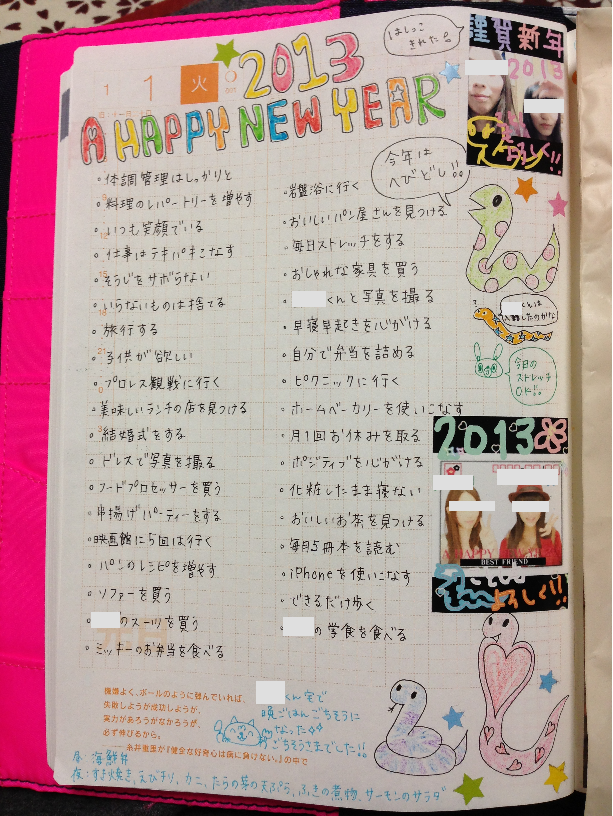 1 1 火
2013
A HAPPY NEW YEAR
はしっこ
きれた!!
謹賀新年
2013
今年は
へびどし!!
・体調管理はしっかりと
・料理のレパートリーを増やす
・いつも笑顔でいる
・仕事はテキパキこなす
・そうじをサボらない
・いらないものは捨てる
・旅行する
・子供が欲しい
・プロレス観戦に行く
・美味しいランチの店を見つける
・結婚式をする
・ドレスで写真を撮る
・フードプロセッサーを買う
・串揚げパーティーをする
・映画館に5回は行く
・パンのレシピを増やす
・ソファーを買う
・のスーツを買う
・ミッキーのお弁当を食べる
・岩盤浴に行く
・おいしいパン屋さんを見つける
・毎日ストレッチをする
・おしゃれな家具を買う
・くんと写真を撮る
・早寝早起きを心がける
・自分で弁当を詰める
・ピクニックに行く
・ホームベーカリーを使いこなす
・月1回お休みを取る
・ポジティブを心がける
・化粧したまま寝ない
・おいしいお茶を見つける
・毎月5冊本を読む
・iPhoneを使いこなす
・できるだけ歩く
・の学食を食べる
くんは
したのかな
今日の
ストレッチ
OK!!
2013
A HAPPY NEW YEAR
BEST FRIEND
よろしく!!
機嫌よく、ボールのように弾んでいれば、
失敗しようが成功しようが、
実力があろうがなかろうが、
必ず伸びるから。
糸井重里が『健全な好奇心は病に負けない。』の中で
くん宅で
晩ごはんごちそうに
なった
ごちそうさまでした!!
昼 海鮮丼
夜:すき焼き、えびチリ、カニ、たらの芽の天ぷら、ふきの煮物、サーモンのサラダ